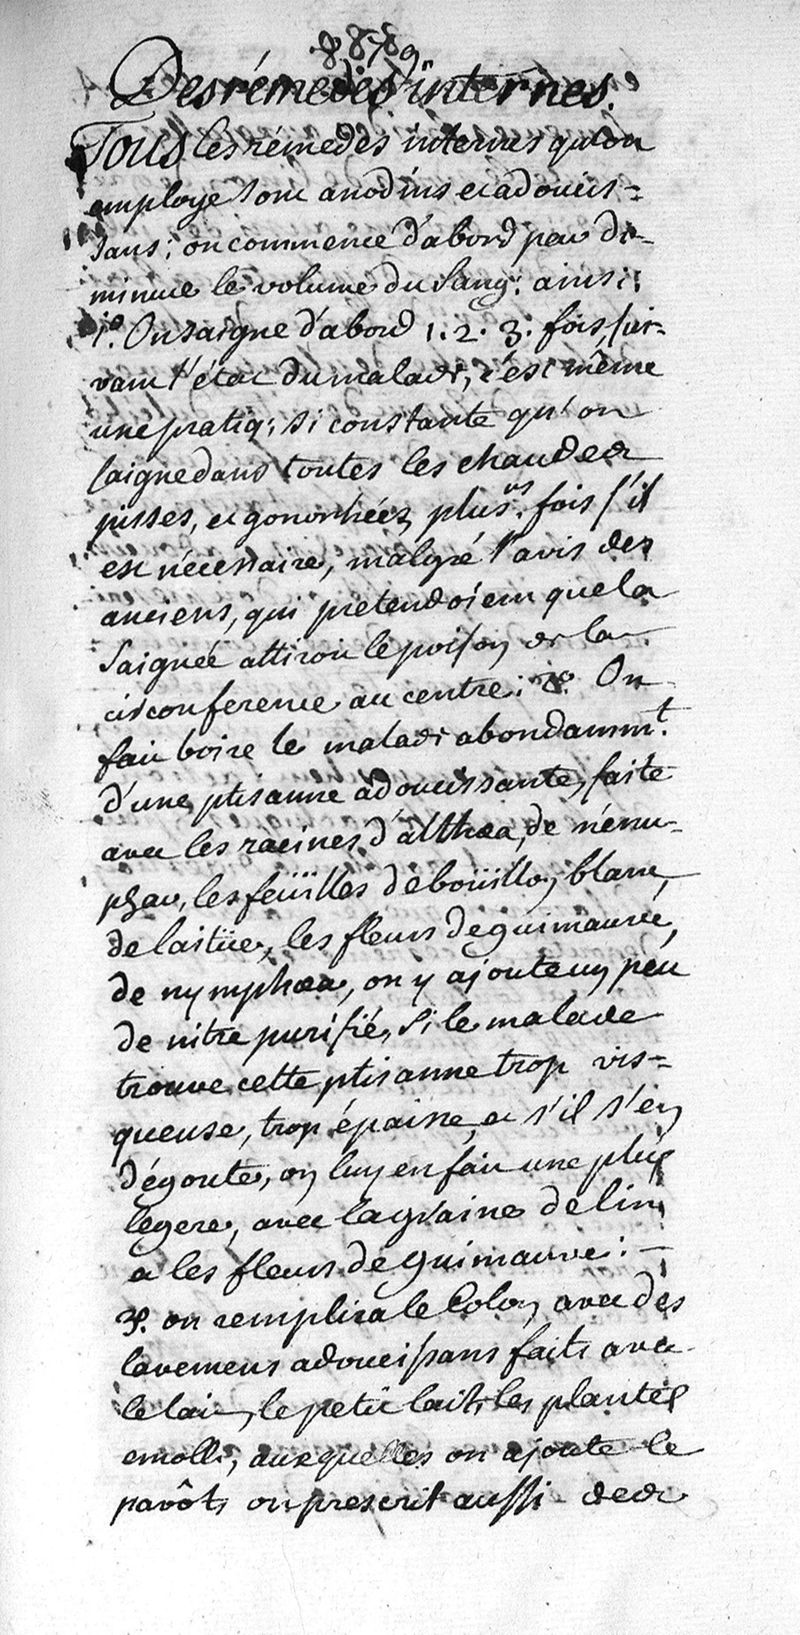 Des rémedes internes.
Tous les rémedes internes qu'on
employe sont anodins et adoucis=
sans; on commence d'abord par di-
minuer le volume du sang: ainsi:
1º. On saigne d'abord 1. 2. 3. fois, sui-
vant l'état du malade, c'est même
une pratiq; si constante qu'on
saigne dans toutes les chaudes
pisses, et gonorhées, plusrs. fois s'il
est nécessaire, malgré l'avis des
anciens, qui pretendoient que la
saignée attiroit le poison de la
circonference au centre: 2º. On
fait boire le malade abondammt.
d'une ptisanne adoucissante, faite
avec les racines d'althæa, de nénu-
phar, les feüilles de boüillon blanc,
de laitüe, les fleurs de guimauve,
de nymphæa, on y ajoute un peu
de nitre purifié, si le malade
trouve cette ptisanne trop vis=
queuse, trop épaisse, et s'il s'en
dégoute, on luy en fait une plus
legere, avec la graine de lin,
et les fleurs de guimauve: —
3º. on remplira le Colon, avec des
lavemens adoucissans faits avec
le lait, le petit lait, les plantes
emolli; auxquelles on ajoute le
pavôt, on prescrit aussi des